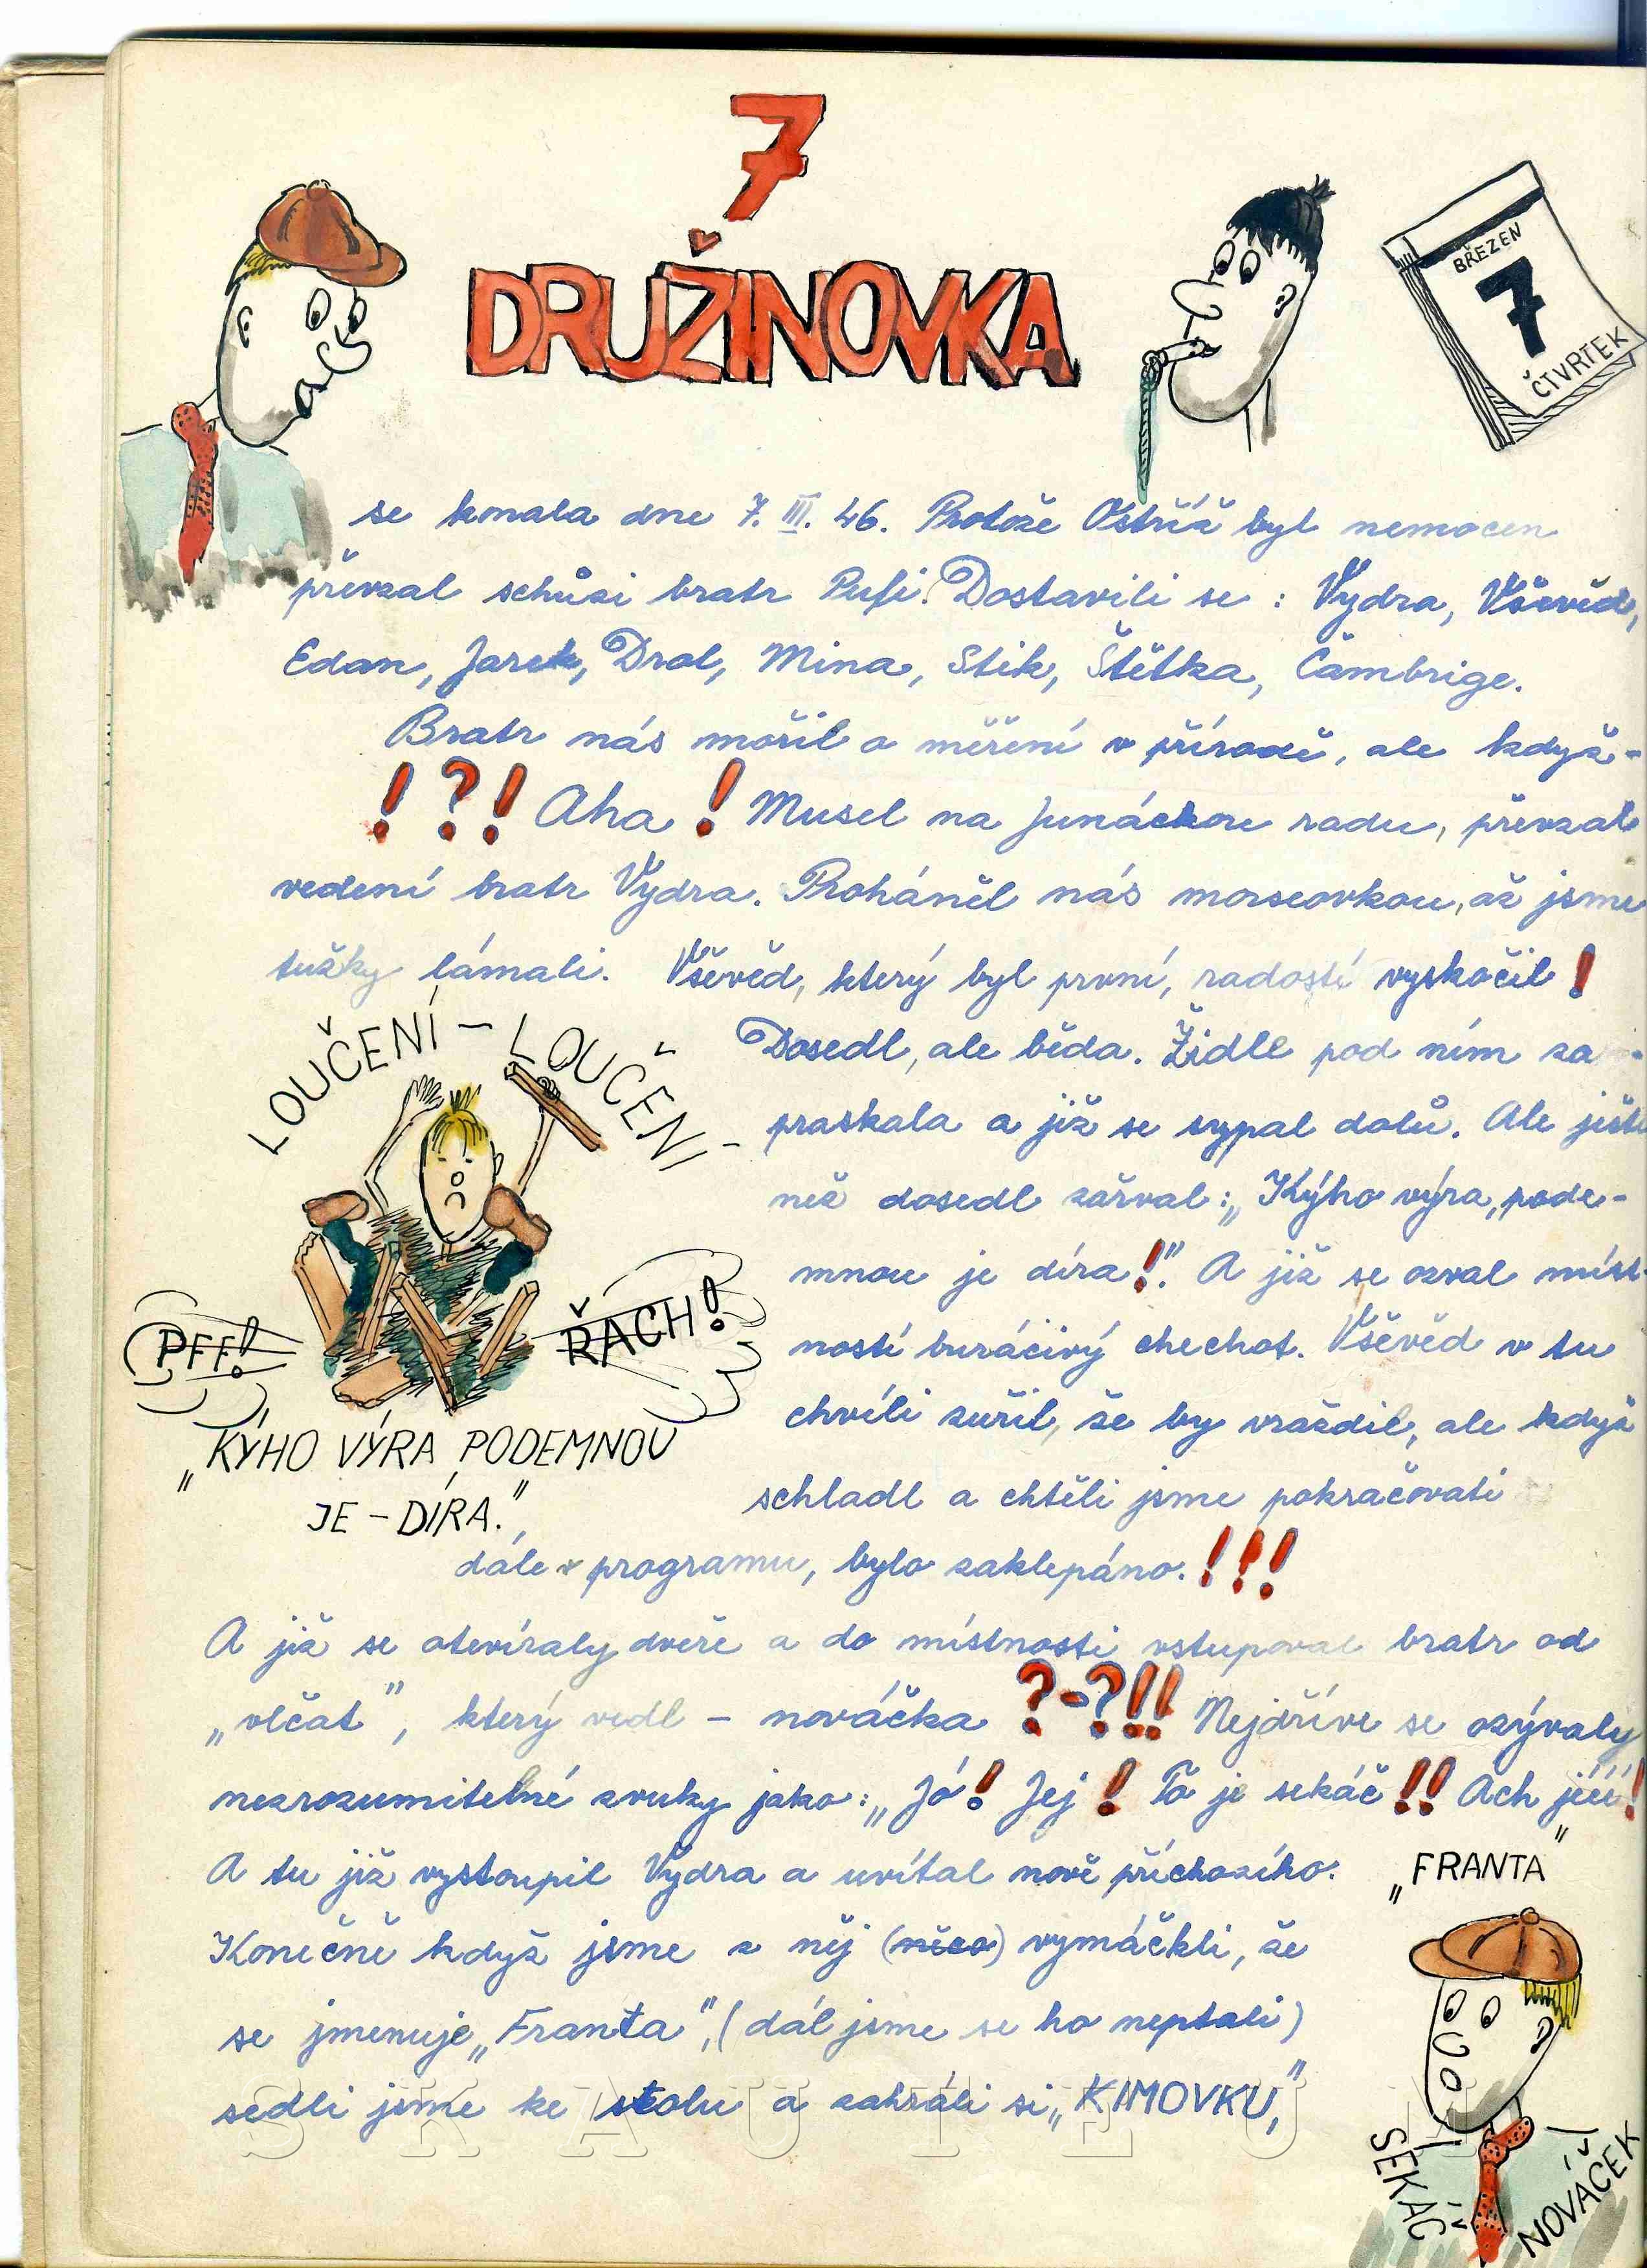 7
DRUŽINOVKA
BŘEZEN
7
ČTVRTEK
se konala dne 7. III. 46. Protože Ostříž byl nemocen
převzal schůzi bratr Pufi. Dostavili se : Vydra, Vševěd,
Edan, Jarek, Drol, Mina, Stik, Štětka, Čambrige.
Bratr nás mořil o měření v přírodě, ale když-
!?! Aha! Musel na Junáckou radu, převzal
vedení bratr Vydra. Proháněl nás morseovkou, až jsme
tužky lámali. Vševěd, který byl první, radostí vyskočil!
Dosedl, ale běda. Židle pod ním za-
praskala a již se sypal dolů. Ale ještě
než dosedl zařval: „Kýho výra, pode-
mnou je díra!". A již se ozval míst-
ností burácivý chechot. Vševěd v tu
chvíli zuřil, že by vraždil, ale když
schladl a chtěli jsme pokračovati
dále v programu, bylo zaklepáno.!!!
LOUČENÍ – LOUČENÍ –
PFF!
ŘACH!
„KÝHO VÝRA PODEMNOU
JE – DÍRA."
A již se otevíraly dveře a do místnosti vstupoval bratr od
„vlčat", který vedl – nováčka ?-?!! Nejdříve se ozývaly
nezrozumitelné zvuky jako: „Jó! Jej! To je sekáč!! Ach jéé!"
A tu již vystoupil Vydra a uvítal nově příchozího.
Konečně když jsme z něj (něco) vymáčkli, že
se jmenuje „Franta", (dál jsme se ho neptali)
sedli jsme ke stolu a zahráli si „KIMOVKU",
„FRANTA"
SEKÁČ
NOVÁČEK
SKAUTEUM